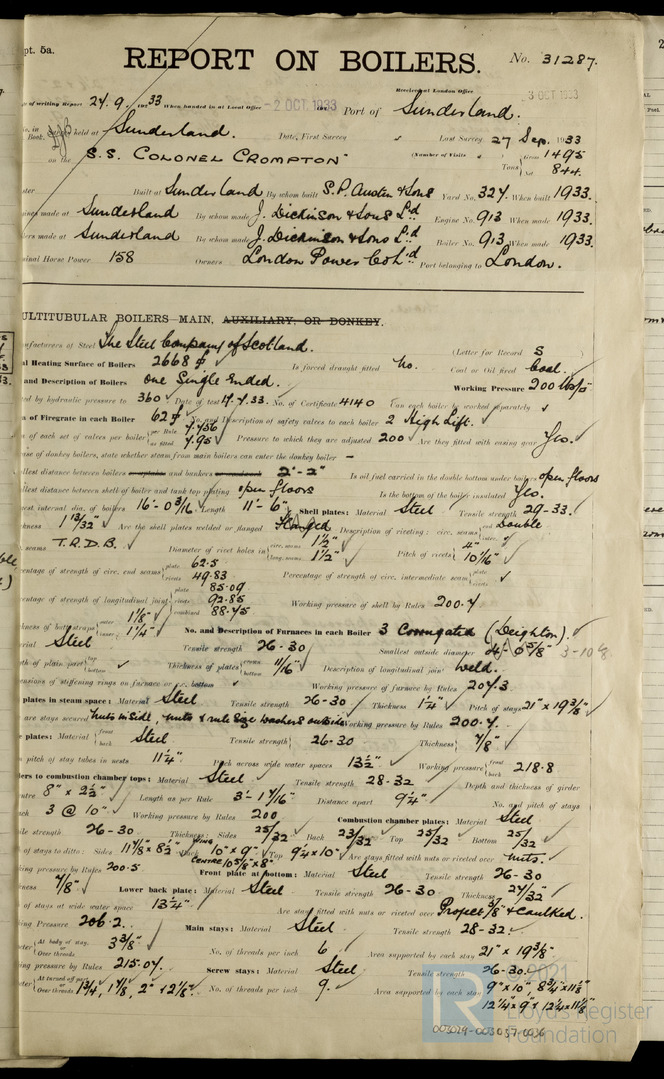 pt. 5a.
REPORT ON BOILERS. No. 31287.
Received at London Office 3 OCT 1933
of writing Report 24. 9. 1933 When handed in at Local Office 2 OCT. 1933 Port of Sunderland.
held at Sunderland. Date, First Survey Last Survey 27 Sep. 1933
on the S.S. COLONEL CROMPTON (Number of Visits Gross 1495
Tons Net 844.
Built at Sunderland By whom built S.P. Austin & Sons Yard No. 327. When built 1933.
made at Sunderland By whom made J. Dickinson & Sons Ld Engine No. 913 When made 1933.
made at Sunderland By whom made J. Dickinson & Sons Ld Boiler No. 913 When made 1933.
inal Horse Power 158 Owners London Power Co Ltd Port belonging to London.
MULTITUBULAR BOILERS MAIN, AUXILIARY, OR DONKEY.
Manufacturers of Steel The Steel Company of Scotland.
(Letter for Record S )
al Heating Surface of Boilers 2668 Is forced draught fitted No. Coal or Oil fired Coal.
and Description of Boilers One Single Ended. Working Pressure 200
ted by hydraulic pressure to 360 Date of test No. of Certificate 4140 Can each boiler be worked separately
of Firegrate in each Boiler 62 No. and Description of safety valves to each boiler 2 High Lift.
of each set of valves per boiler per Rule 7.456 as fitted 7.95 Pressure to which they are adjusted 200 Are they fitted with easing gear Yes.
case of donkey boilers, state whether steam from main boilers can enter the donkey boiler —
llest distance between boilers and bunkers 2'-2" Is oil fuel carried in the double bottom under boilers open floors
llest distance between shell of boiler and tank top plating open floors Is the bottom of the boiler insulated Yes.
est internal dia. of boilers 16'-0 3/16" Length 11'-6" Shell plates: Material Steel Tensile strength 29-33.
kness 1 13/32" Are the shell plates welded or flanged Flanged Description of riveting: circ. seams end Double
seams T.R.D.B. Diameter of rivet holes in circ. seams 1 1/2" long. seams 1 1/2" Pitch of rivets 4" 10 1/16"
centage of strength of circ. end seams plate 62.5 rivets 49.83 Percentage of strength of circ. intermediate seam plate rivets
centage of strength of longitudinal joint plate 85.09 rivets 92.85 combined 88.45 Working pressure of shell by Rules 200.4
kness of butt straps outer 1 1/8" inner 1 1/4" No. and Description of Furnaces in each Boiler 3 Corrugated (Deighton).
rial Steel Tensile strength 26-30 Smallest outside diameter 3-10
th of plain part top bottom Thickness of plates crown bottom 11/16" Description of longitudinal joint Weld.
ensions of stiffening rings on furnace or c.c. bottom Working pressure of furnace by Rules 207.3
plates in steam space: Material Steel Tensile strength 26-30 Thickness 1 1/4" Pitch of stays 21" x 19 3/8"
are stays secured Nuts inside, nuts & rule size washers outside Working pressure by Rules 200.7.
plates: Material front back Steel Tensile strength 26-30 Thickness 7/8"
pitch of stay tubes in nests 11 1/4" Pitch across wide water spaces 13 1/2" Working pressure front back 218.8
ders to combustion chamber tops: Material Steel Tensile strength 28-32 Depth and thickness of girder
entre 8" x 2 1/2" Length as per Rule 3'-1 7/16" Distance apart 9 1/4" No. and pitch of stays
ach 3 @ 10" Working pressure by Rules 200 Combustion chamber plates: Material Steel
ile strength 26-30 Thickness: Sides 25/32 Back 23/32 Top 25/32 Bottom 25/32
of stays to ditto: Sides 11 7/8" x 8 1/2" Back WING 10" x 9" CENTRE 10 5/8" x 8" Top 9 1/4 x 10" Are stays fitted with nuts or riveted over nuts.
king pressure by Rules 200.5 Front plate at bottom: Material Steel Tensile strength 26-30
ness 7/8" Lower back plate: Material Steel Tensile strength 26-30 Thickness 27/32"
of stays at wide water space 13 3/4" Are stays fitted with nuts or riveted over Project 3/8" & caulked.
ing Pressure 206.2. Main stays: Material Steel Tensile strength 28-32.
eter At body of stay, or Over threads 3 3/8" No. of threads per inch 6 Area supported by each stay 21" x 19 3/8"
ing pressure by Rules 215.07. Screw stays: Material Steel Tensile strength 26-30.
eter At turned off part, or Over threads 1 3/4, 1 7/8, 2" & 2 1/8". No. of threads per inch 9. Area supported by each stay 9" x 10", 8 3/4 x 11 1/8"
12 1/4" x 9" & 12 1/4 x 11 7/8"
© 2021
Lloyd's Register
Foundation
003029-003037-0036